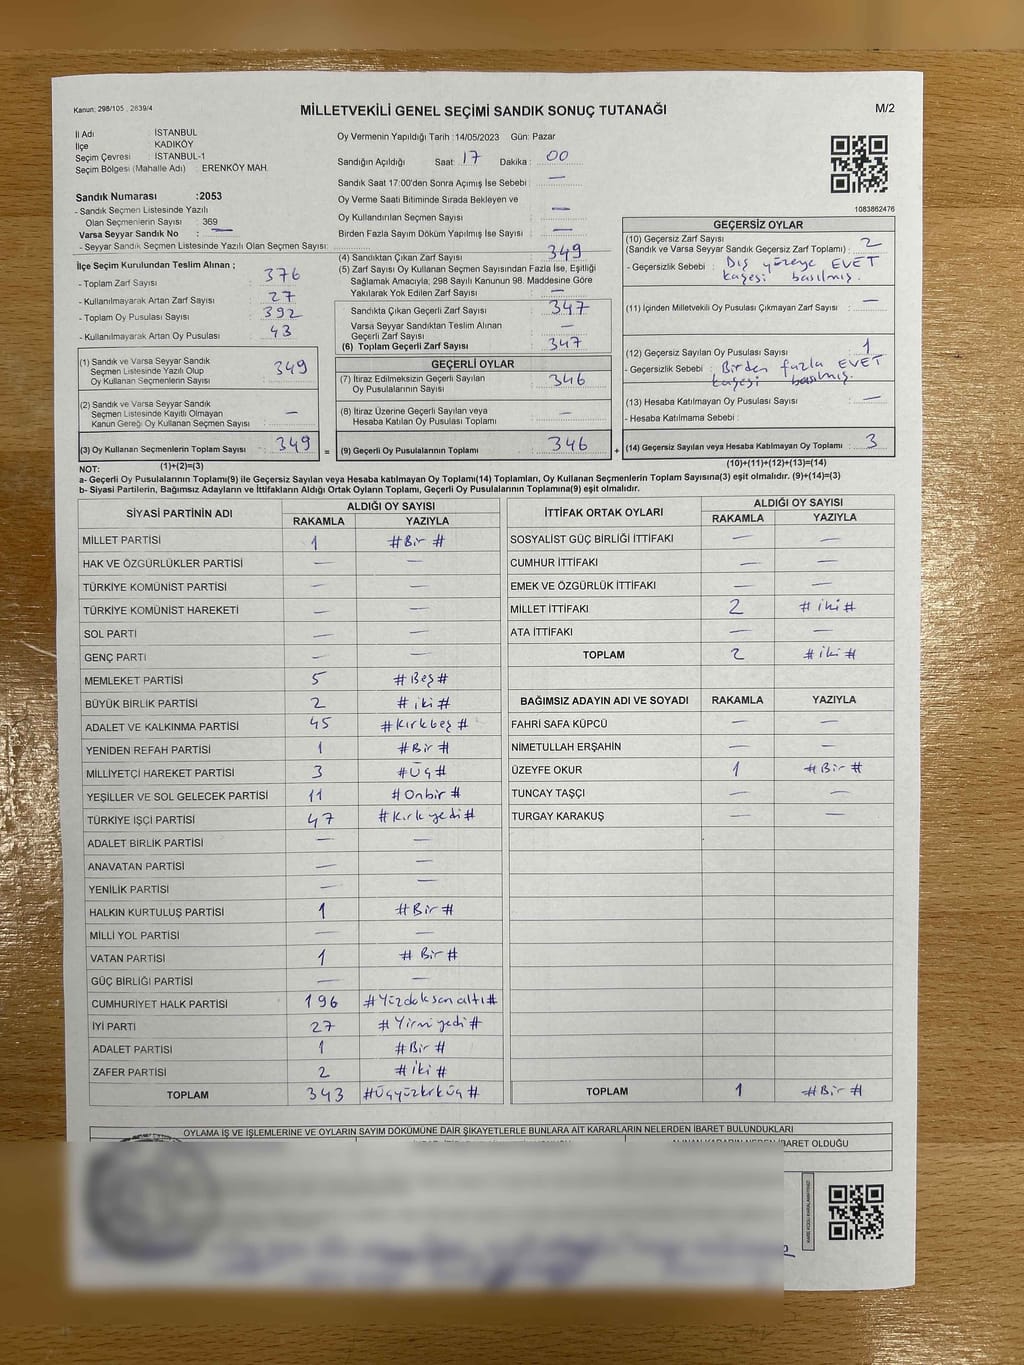 Kanun: 298/105 , 2839/4
MİLLETVEKİLİ GENEL SEÇİMİ SANDIK SONUÇ TUTANAĞI
M/2
İl Adı İSTANBUL
İlçe KADIKÖY
Seçim Çevresi : İSTANBUL-1
Seçim Bölgesi (Mahalle Adı) : ERENKÖY MAH.
Sandık Numarası :2053
- Sandık Seçmen Listesinde Yazılı
Olan Seçmenlerin Sayısı : 369
Varsa Seyyar Sandık No : —
- Seyyar Sandık Seçmen Listesinde Yazılı Olan Seçmen Sayısı:
Oy Vermenin Yapıldığı Tarih : 14/05/2023 Gün: Pazar
Sandığın Açıldığı Saat : 17 Dakika : 00
Sandık Saat 17:00'den Sonra Açımış İse Sebebi : —
Oy Verme Saati Bitiminde Sırada Bekleyen ve
Oy Kullandırılan Seçmen Sayısı : —
Birden Fazla Sayım Döküm Yapılmış İse Sayısı : —
1083862476
İlçe Seçim Kurulundan Teslim Alınan ;
- Toplam Zarf Sayısı : 376
- Kullanılmayarak Artan Zarf Sayısı : 27
- Toplam Oy Pusulası Sayısı : 392
- Kullanılmayarak Artan Oy Pusulası : 43
(1) Sandık ve Varsa Seyyar Sandık
Seçmen Listesinde Yazılı Olup
Oy Kullanan Seçmenlerin Sayısı : 349
(2) Sandık ve Varsa Seyyar Sandık
Seçmen Listesinde Kayıtlı Olmayan
Kanun Gereği Oy Kullanan Seçmen Sayısı : —
(3) Oy Kullanan Seçmenlerin Toplam Sayısı : 349
(4) Sandıktan Çıkan Zarf Sayısı : 349
(5) Zarf Sayısı Oy Kullanan Seçmen Sayısından Fazla İse, Eşitliği
Sağlamak Amacıyla; 298 Sayılı Kanunun 98. Maddesine Göre
Yakılarak Yok Edilen Zarf Sayısı : —
Sandıkta Çıkan Geçerli Zarf Sayısı : 347
Varsa Seyyar Sandıktan Teslim Alınan
Geçerli Zarf Sayısı : —
(6) Toplam Geçerli Zarf Sayısı : 347
GEÇERLİ OYLAR
(7) İtiraz Edilmeksizin Geçerli Sayılan
Oy Pusulalarının Sayısı : 346
(8) İtiraz Üzerine Geçerli Sayılan veya
Hesaba Katılan Oy Pusulası Toplamı : —
= (9) Geçerli Oy Pusulalarının Toplamı : 346 +
GEÇERSİZ OYLAR
(10) Geçersiz Zarf Sayısı
(Sandık ve Varsa Seyyar Sandık Geçersiz Zarf Toplamı) : 2
- Geçersizlik Sebebi : Dış yüzeye EVET
kaşesi basılmış.
(11) İçinden Milletvekili Oy Pusulası Çıkmayan Zarf Sayısı : —
(12) Geçersiz Sayılan Oy Pusulası Sayısı : 1
- Geçersizlik Sebebi : Birden fazla EVET
kaşesi basılmış.
(13) Hesaba Katılmayan Oy Pusulası Sayısı : —
- Hesaba Katılmama Sebebi :
(14) Geçersiz Sayılan veya Hesaba Katılmayan Oy Toplamı : 3
NOT: (1)+(2)=(3) (10)+(11)+(12)+(13)=(14)
a- Geçerli Oy Pusulalarının Toplamı(9) ile Geçersiz Sayılan veya Hesaba katılmayan Oy Toplamı(14) Toplamları, Oy Kullanan Seçmenlerin Toplam Sayısına(3) eşit olmalıdır. (9)+(14)=(3)
b- Siyasi Partilerin, Bağımsız Adayların ve İttifakların Aldığı Ortak Oyların Toplamı, Geçerli Oy Pusulalarının Toplamına(9) eşit olmalıdır.
SİYASİ PARTİNİN ADI ALDIĞI OY SAYISI
RAKAMLA YAZIYLA
MİLLET PARTİSİ 1 #Bir#
HAK VE ÖZGÜRLÜKLER PARTİSİ — —
TÜRKİYE KOMÜNİST PARTİSİ — —
TÜRKİYE KOMÜNİST HAREKETİ — —
SOL PARTİ — —
GENÇ PARTİ — —
MEMLEKET PARTİSİ 5 #Beş#
BÜYÜK BİRLİK PARTİSİ 2 #iki#
ADALET VE KALKINMA PARTİSİ 45 #Kırkbeş#
YENİDEN REFAH PARTİSİ 1 #Bir#
MİLLİYETÇİ HAREKET PARTİSİ 3 #Üç#
YEŞİLLER VE SOL GELECEK PARTİSİ 11 #Onbir#
TÜRKİYE İŞÇİ PARTİSİ 47 #Kırkyedi#
ADALET BİRLİK PARTİSİ — —
ANAVATAN PARTİSİ — —
YENİLİK PARTİSİ — —
HALKIN KURTULUŞ PARTİSİ 1 #Bir#
MİLLİ YOL PARTİSİ — —
VATAN PARTİSİ 1 #Bir#
GÜÇ BİRLİĞİ PARTİSİ — —
CUMHURİYET HALK PARTİSİ 196 #Yüzdoksanaltı#
İYİ PARTİ 27 #Yirmiyedi#
ADALET PARTİSİ 1 #Bir#
ZAFER PARTİSİ 2 #iki#
TOPLAM 343 #Üçyüzkırküç#
İTTİFAK ORTAK OYLARI ALDIĞI OY SAYISI
RAKAMLA YAZIYLA
SOSYALİST GÜÇ BİRLİĞİ İTTİFAKI — —
CUMHUR İTTİFAKI — —
EMEK VE ÖZGÜRLÜK İTTİFAKI — —
MİLLET İTTİFAKI 2 #iki#
ATA İTTİFAKI — —
TOPLAM 2 #iki#
BAĞIMSIZ ADAYIN ADI VE SOYADI RAKAMLA YAZIYLA
FAHRİ SAFA KÜPCÜ — —
NİMETULLAH ERŞAHİN — —
ÜZEYFE OKUR 1 #Bir#
TUNCAY TAŞÇI — —
TURGAY KARAKUŞ — —
TOPLAM 1 #Bir#
OYLAMA İŞ VE İŞLEMLERİNE VE OYLARIN SAYIM DÖKÜMÜNE DAİR ŞİKAYETLERLE BUNLARA AİT KARARLARIN NELERDEN İBARET BULUNDUKLARI
ALINAN KARARIN NEDEN İBARET OLDUĞU